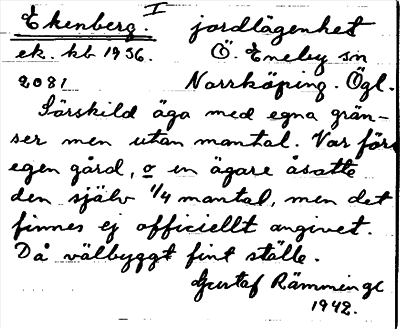 Ekenberg. I jordlägenhet
ek. kb 1936. Ö. Eneby sn
2081 Norrköping. Ögl.
Särskild äga med egna grän-
ser men utan mantal. Var förr
egen gård, o en ägare åsatte
den själv 1/4 mantal, men det
finnes ej officiellt angivet.
Då välbyggt fint ställe.
Gustaf Rämminge
1942.